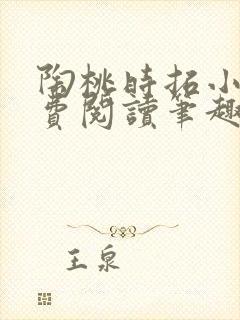 陶桃時拓小
費閱讀筆趣
王泉